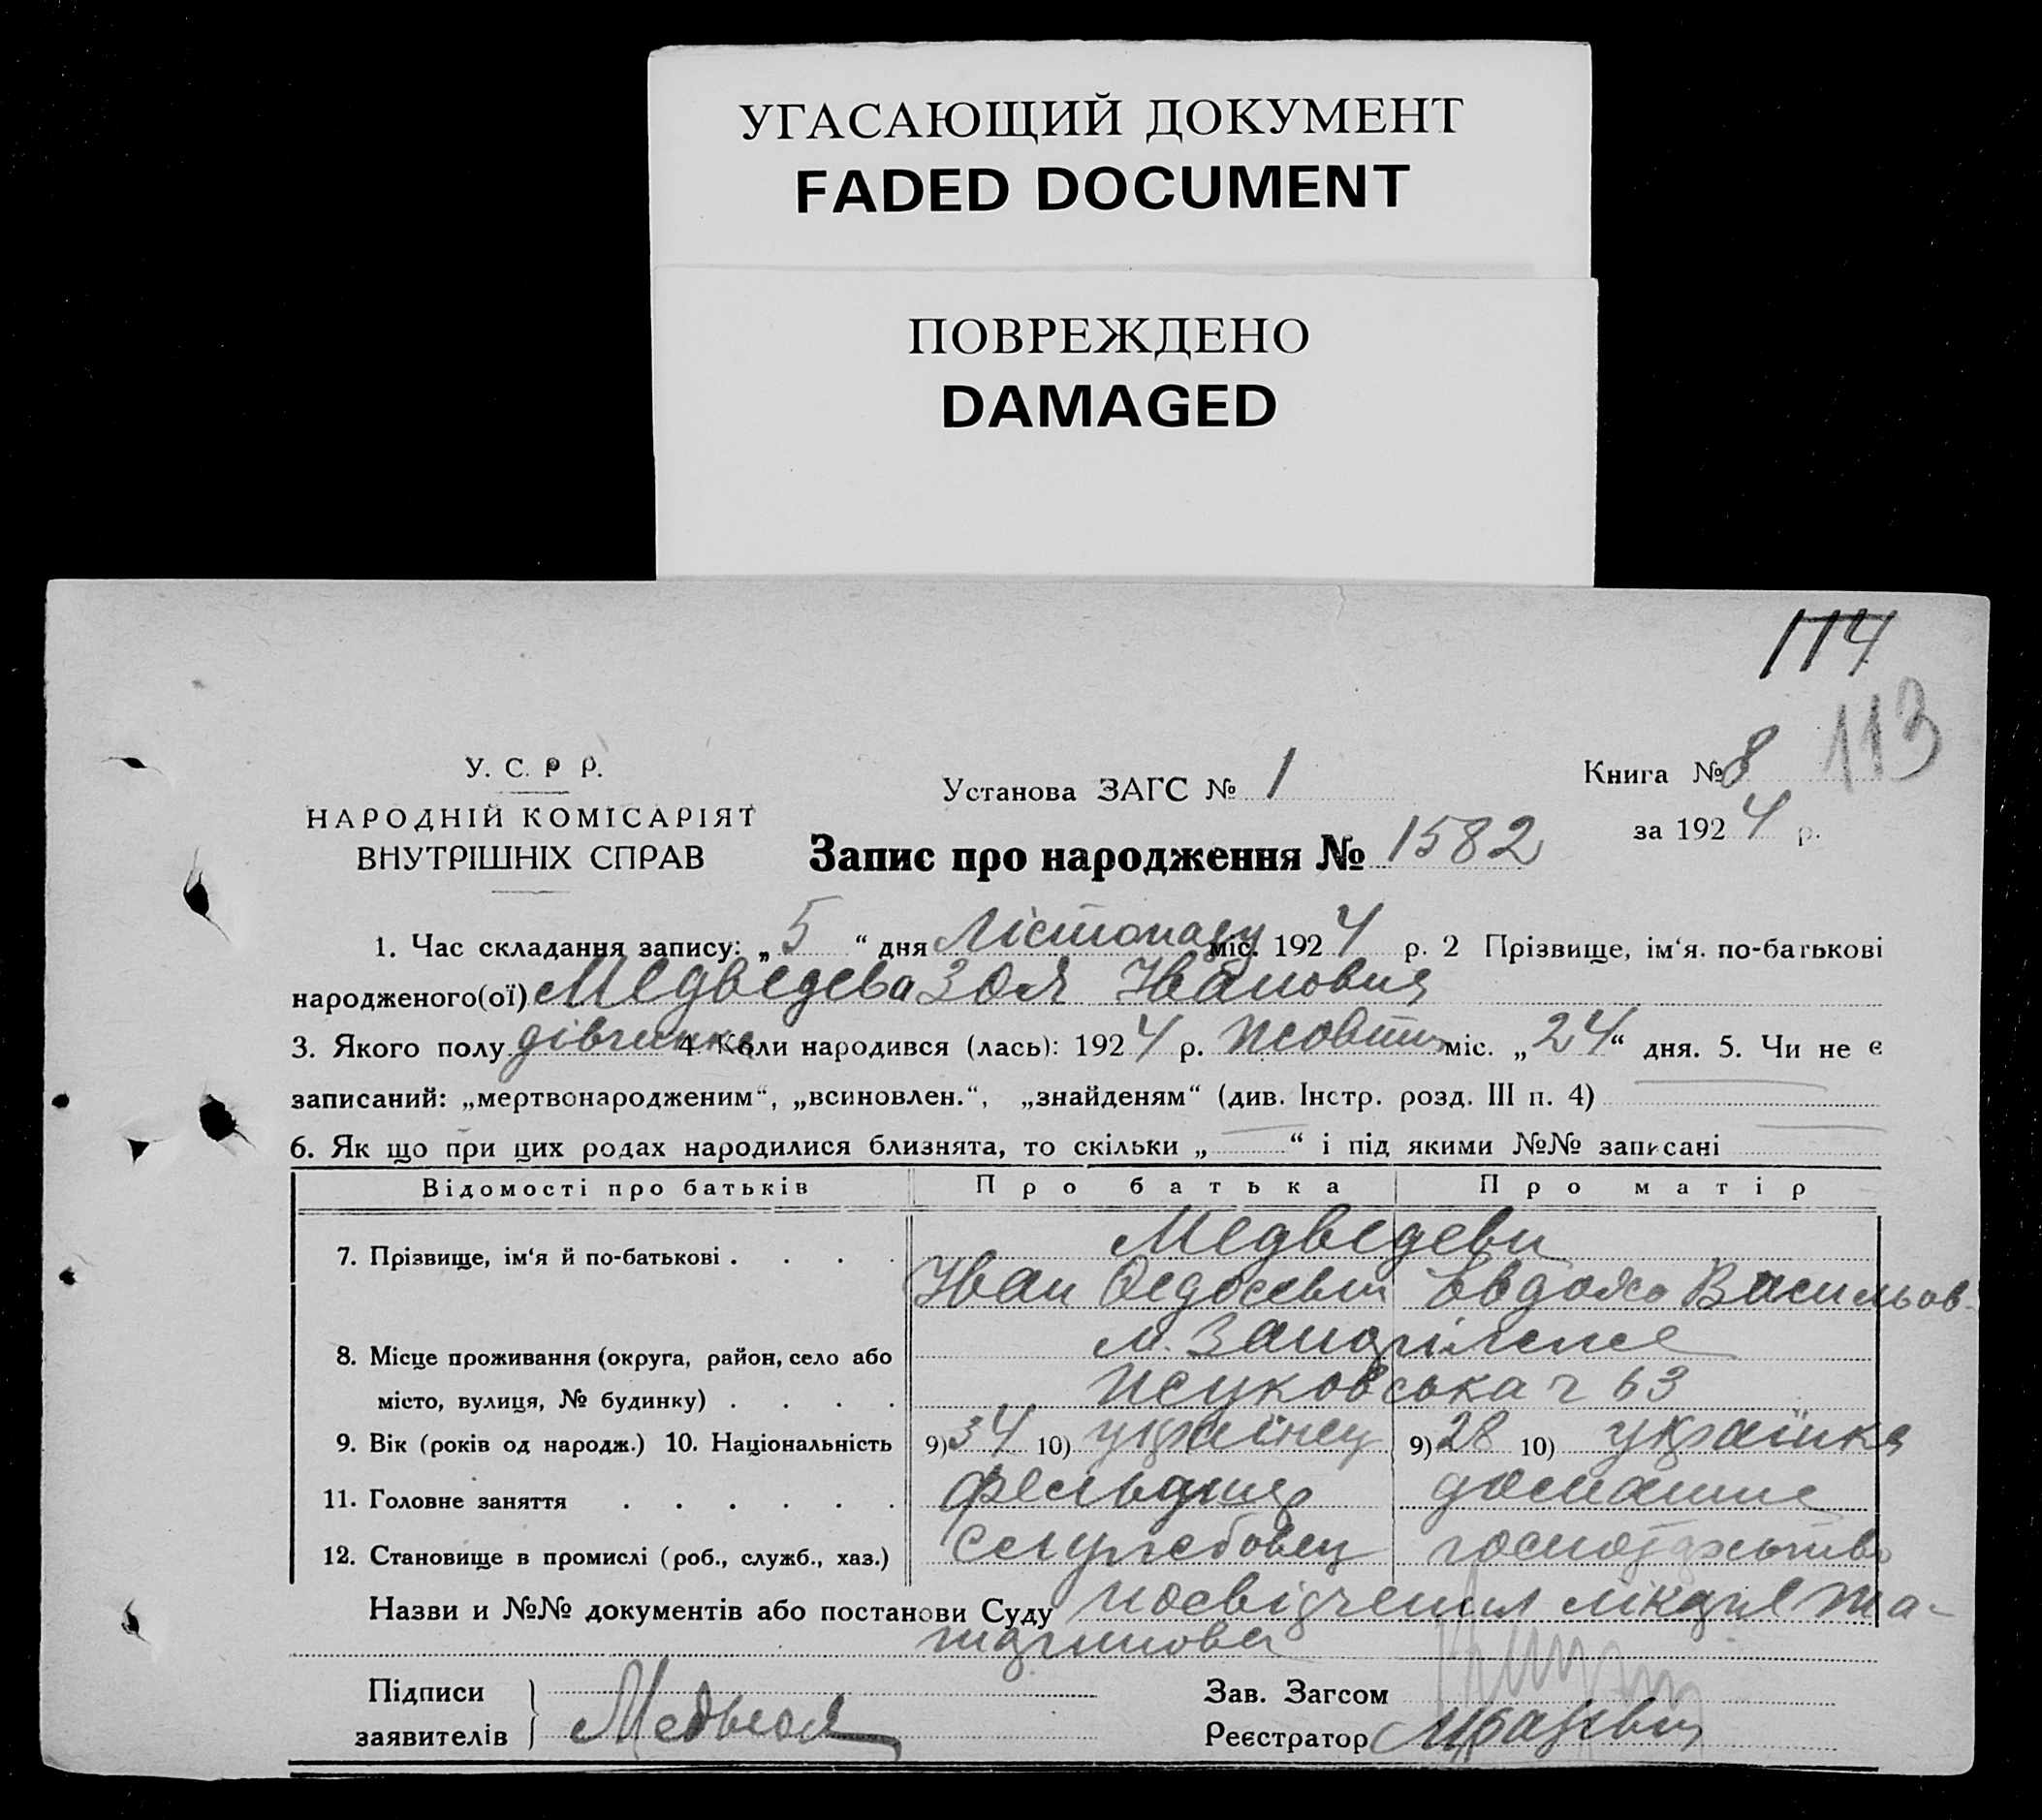 УГАСАЮЩИЙ ДОКУМЕНТ
FADED DOCUMENT
ПОВРЕЖДЕНО
DAMAGED
114
113
У. С. Р. Р.
НАРОДНІЙ КОМІСАРІЯТ
ВНУТРІШНІХ СПРАВ
Установа ЗАГС № 1
Книга № 8
за 1924 р.
Запис про народження № 1582
1. Час складання запису: „5“ дня Лістопаду міс. 1924 р. 2 Прізвище, ім‘я. по-батькові
народженого(ої) Медведева Зоя Івановна
3. Якого полу дівчинка 4. Коли народився (лась): 1924 р. Жовтня міс. „24“ дня. 5. Чи не є
записаний: „мертвонародженим“, „всиновлен.“, „знайденям“ (див. Інстр. розд. III п. 4)
6. Як що при цих родах народилися близнята, то скільки „ “ і під якими №№ записані
Відомості про батьків Про батька Про матір
7. Прізвище, ім‘я й по-батькові . . . . Медведеви
Іван Федосевич Евдокія Васильов
8. Місце проживання (округа, район, село або м. Запоріжжє
місто, вулиця, № будинку) . . . . Жуковська 63
9. Вік (років од народж.) 10. Національність 9) 34 10) українец 9) 28 10) українка
11. Головне заняття . . . . . . фельдшер домашне
12. Становище в промислі (роб., служб., хаз.) служебовец господарьство
Назви и №№ документів або постанови Суду посвідчення лікаря
Підписи
заявителів
Зав. Загсом
Реєстратор